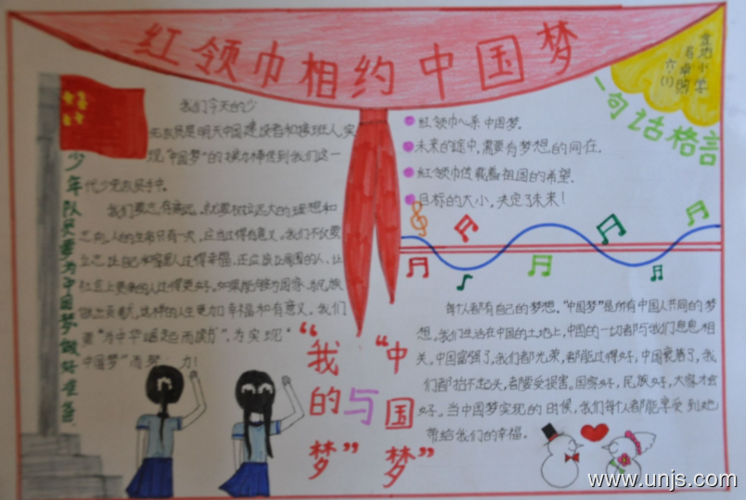 红领巾相约中国梦
金地小学
六(1)
一句话格言
少年队员要为中国梦做好准备
我们今天的少
先队员是明天中国建设者和接班人,实
现"中国梦"的接力棒传到我们这一
代少先队员手中。
我们要志存高远。就要树立远大的理想和
志向。人的生命只有一次,应当过得有意义。我们不仅要
立志,让自己和家人过得幸福,还应该让周围的人,让
社会上更多的人过得更好。如果能为国家、为民族
做出贡献,这样的人生更加幸福和有意义。我们
要"为中华崛起而读书",为实现"
中国梦"而努 力!
红领巾心系中国梦。
未来的途中,需要有梦想的同在。
红领巾传载着祖国的希望。
目标的大小,决定了未来!
"我的梦"
与
"中国梦"
每个人都有自己的梦想。"中国梦"是所有中国人共同的梦
想。我们生活在中国的土地上,中国的一切都与我们息息相
关。中国富强了,我们都光荣,都能过得好,中国衰落了,我
们都抬不起头,都蒙受损害。国家好,民族好,大家才会
好。当中国梦实现的时候,我们每个人都能享受到她
带给我们的幸福。
www.unjs.com